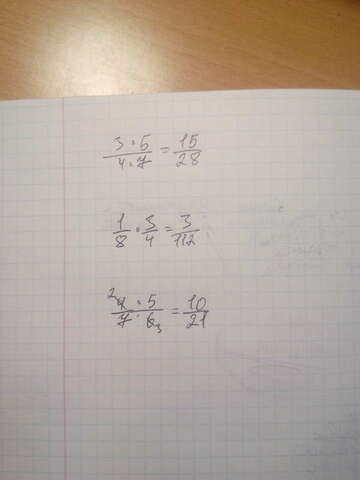 3 · 5 / 4 · 7 = 15 / 28
1 / 8 · 3 / 4 = 3 / 112
2 4 · 5 / 7 · 6 3 = 10 / 21